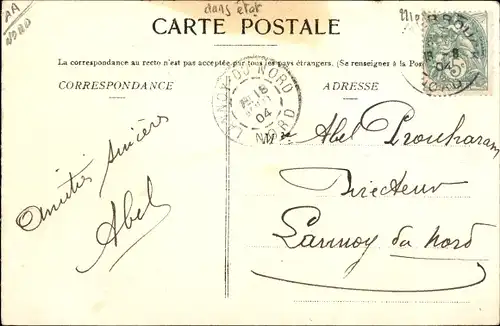 AA
NORD
dans état
CARTE POSTALE
La correspondance au recto n'est pas acceptée par tous les pays étrangers. (Se renseigner à la Poste
CORRESPONDANCE
ADRESSE
LANNOY-DU-NORD
15
04
NORD
8
04
5
Abel
Directeur
Lannoy du Nord
Amitiés sincères
Abel